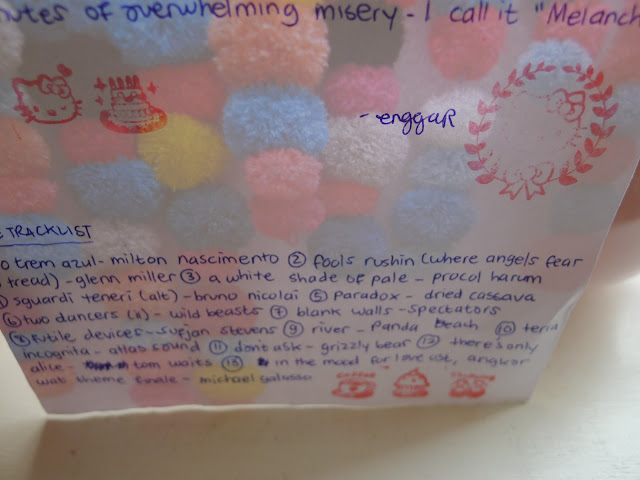 nutes of overwhelming misery - I call it "Melanch
- enggar
E TRACKLIST
o trem azul - milton nascimento ② fools rushin (where angels fear
tread) - glenn miller ③ a white shade of pale - procol harum
sguardi teneri (alt) - bruno nicolai ⑤ paradox - dried cassava
⑥ two dancers (ii) - wild beasts ⑦ blank walls - spectators
⑧ futile devices - sufjan stevens ⑨ river - Panda Beach ⑩ terra
incognita - atlas sound ⑪ dont ask - grizzly bear ⑫ there's only
alice - tom waits ⑬ in the mood for love ost, angkor
wat theme finale - michael galasso
COFFEE